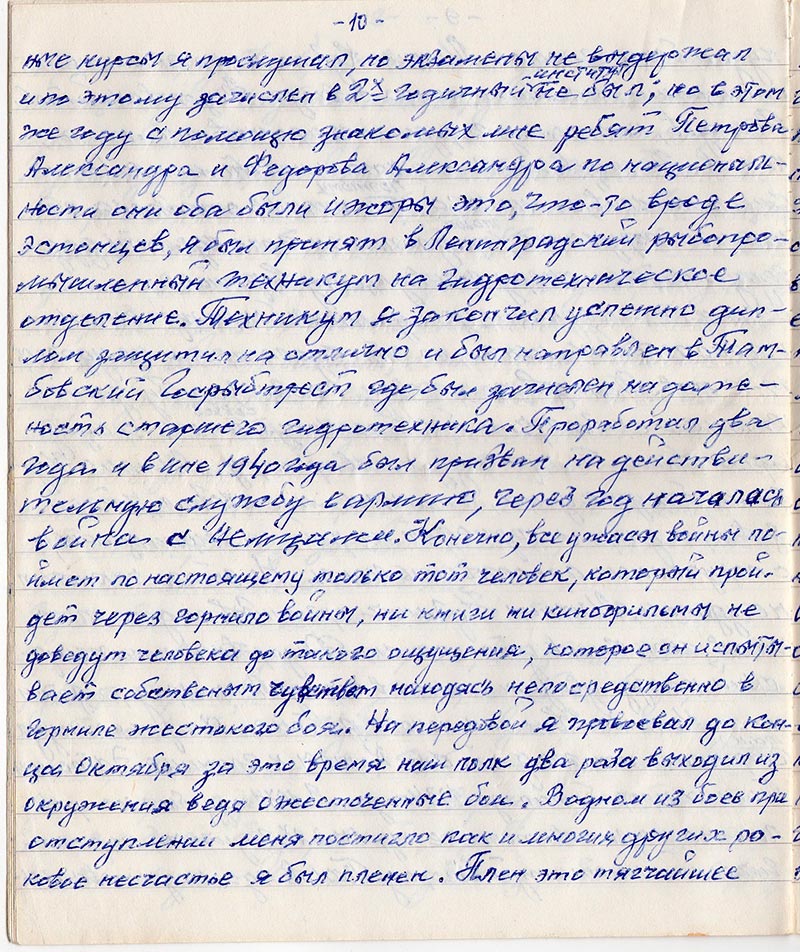 -10-
ные курсы я прослушал, но экзамены не выдержал
институт
и по этому зачислен в 2х годичный не был; но в этом
же году с помощю знакомых мне ребят Петрова
Александра и Федорова Александра по националь-
ности они оба были ижоры это, что-то вроде
эстонцев, я был принят в Ленинградский рыбопро-
мышленный техникум на гидротехническое
отделение. Техникум я закончил успешно дип-
лом защитил на отлично и был направлен в Там-
бовский Госрыбтрест где был зачислен на долж-
ность старшего гидротехника. Проработал два
года и в 1940 года был призван на действи-
тельную службу в армию, через год началась
война с немцами. Конечно, все ужасы войны по-
ймет по настоящему только тот человек, который прой-
дет через горнило войны, ни книги ни кинофильмы не
доведут человека до такого ощущения, которое он испыты-
вает собственым чувством находясь непосредственно в
горниле жестокого боя. На передовой я провоевал до кон-
ца Октября за это время наш полк два раза выходил из
окружения ведя ожесточенные бои. В одном из боев при
отступлении меня постигло как и многих других ро-
ковое несчастье я был пленен. Плен это тягчайшее